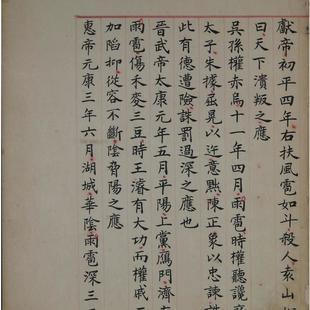 獻帝初平四年右扶風雹如斗殺人袁山
曰天下潰叛之應
吳孫權赤烏十一年四月雨雹時權聽讒
太子朱據屈晃以迕意黜陳正象以忠諫
此有德遭險誅罰過深之應也
晉武帝太康元年五月平陽上黨鴈門濟
雨雹傷禾麥三豆時王濬有大功而權戚
加陷抑從容不斷陰脅陽之應
惠帝元康三年六月湖城華陰雨雹深三